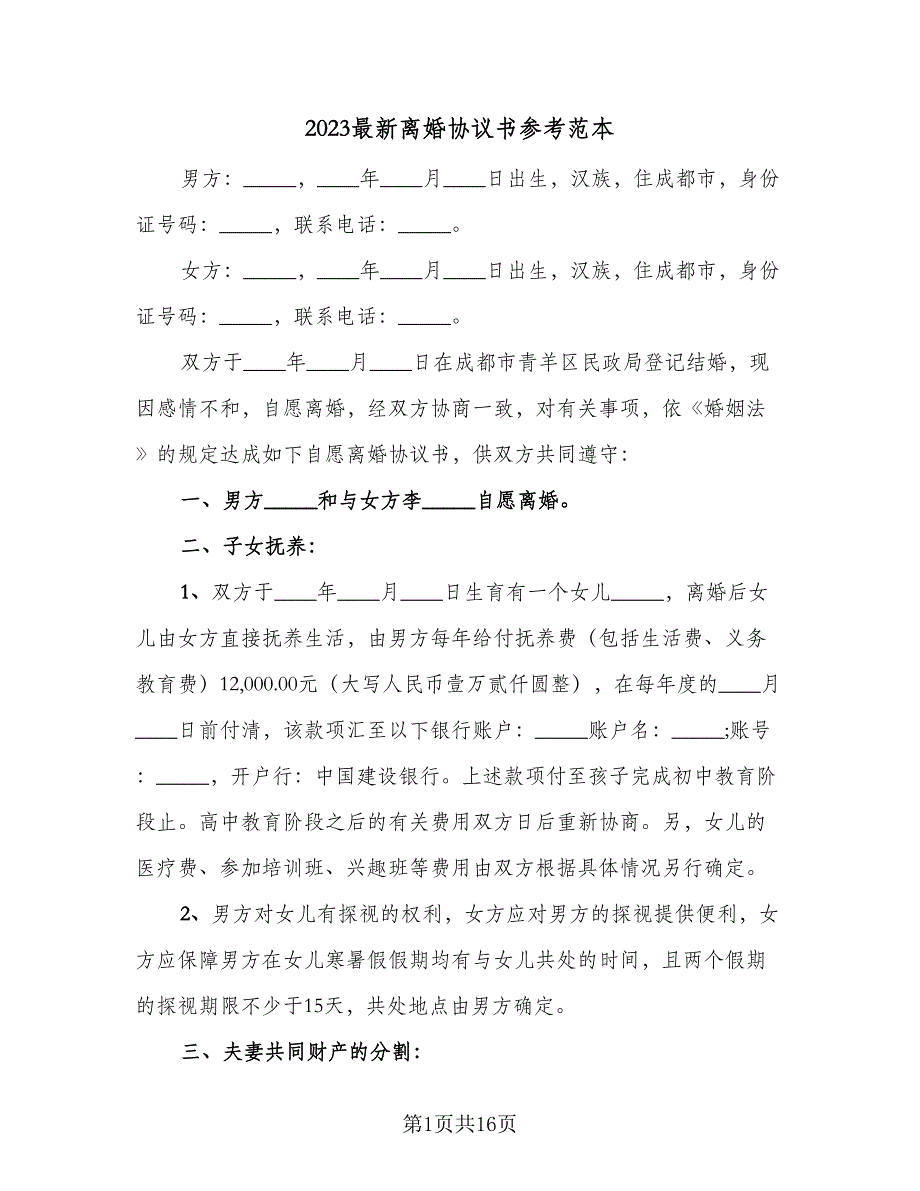 2023最新离婚协议书参考范本
男方：_____，____年____月____日出生，汉族，住成都市，身份
证号码：_____，联系电话：_____。
女方：_____，____年____月____日出生，汉族，住成都市，身份
证号码：_____，联系电话：_____。
双方于____年____月____日在成都市青羊区民政局登记结婚，现
因感情不和，自愿离婚，经双方协商一致，对有关事项，依《婚姻法
》的规定达成如下自愿离婚协议书，供双方共同遵守：
一、男方_____和与女方李_____自愿离婚。
二、子女抚养：
1、双方于____年____月____日生育有一个女儿_____，离婚后女
儿由女方直接抚养生活，由男方每年给付抚养费（包括生活费、义务
教育费）12,000.00元（大写人民币壹万贰仟圆整），在每年度的____月
____日前付清，该款项汇至以下银行账户：_____账户名：_____;账号
：_____，开户行：中国建设银行。上述款项付至孩子完成初中教育阶
段止。高中教育阶段之后的有关费用双方日后重新协商。另，女儿的
医疗费、参加培训班、兴趣班等费用由双方根据具体情况另行确定。
2、男方对女儿有探视的权利，女方应对男方的探视提供便利，女
方应保障男方在女儿寒暑假假期均有与女儿共处的时间，且两个假期
的探视期限不少于15天，共处地点由男方确定。
三、夫妻共同财产的分割：
第1页共16页